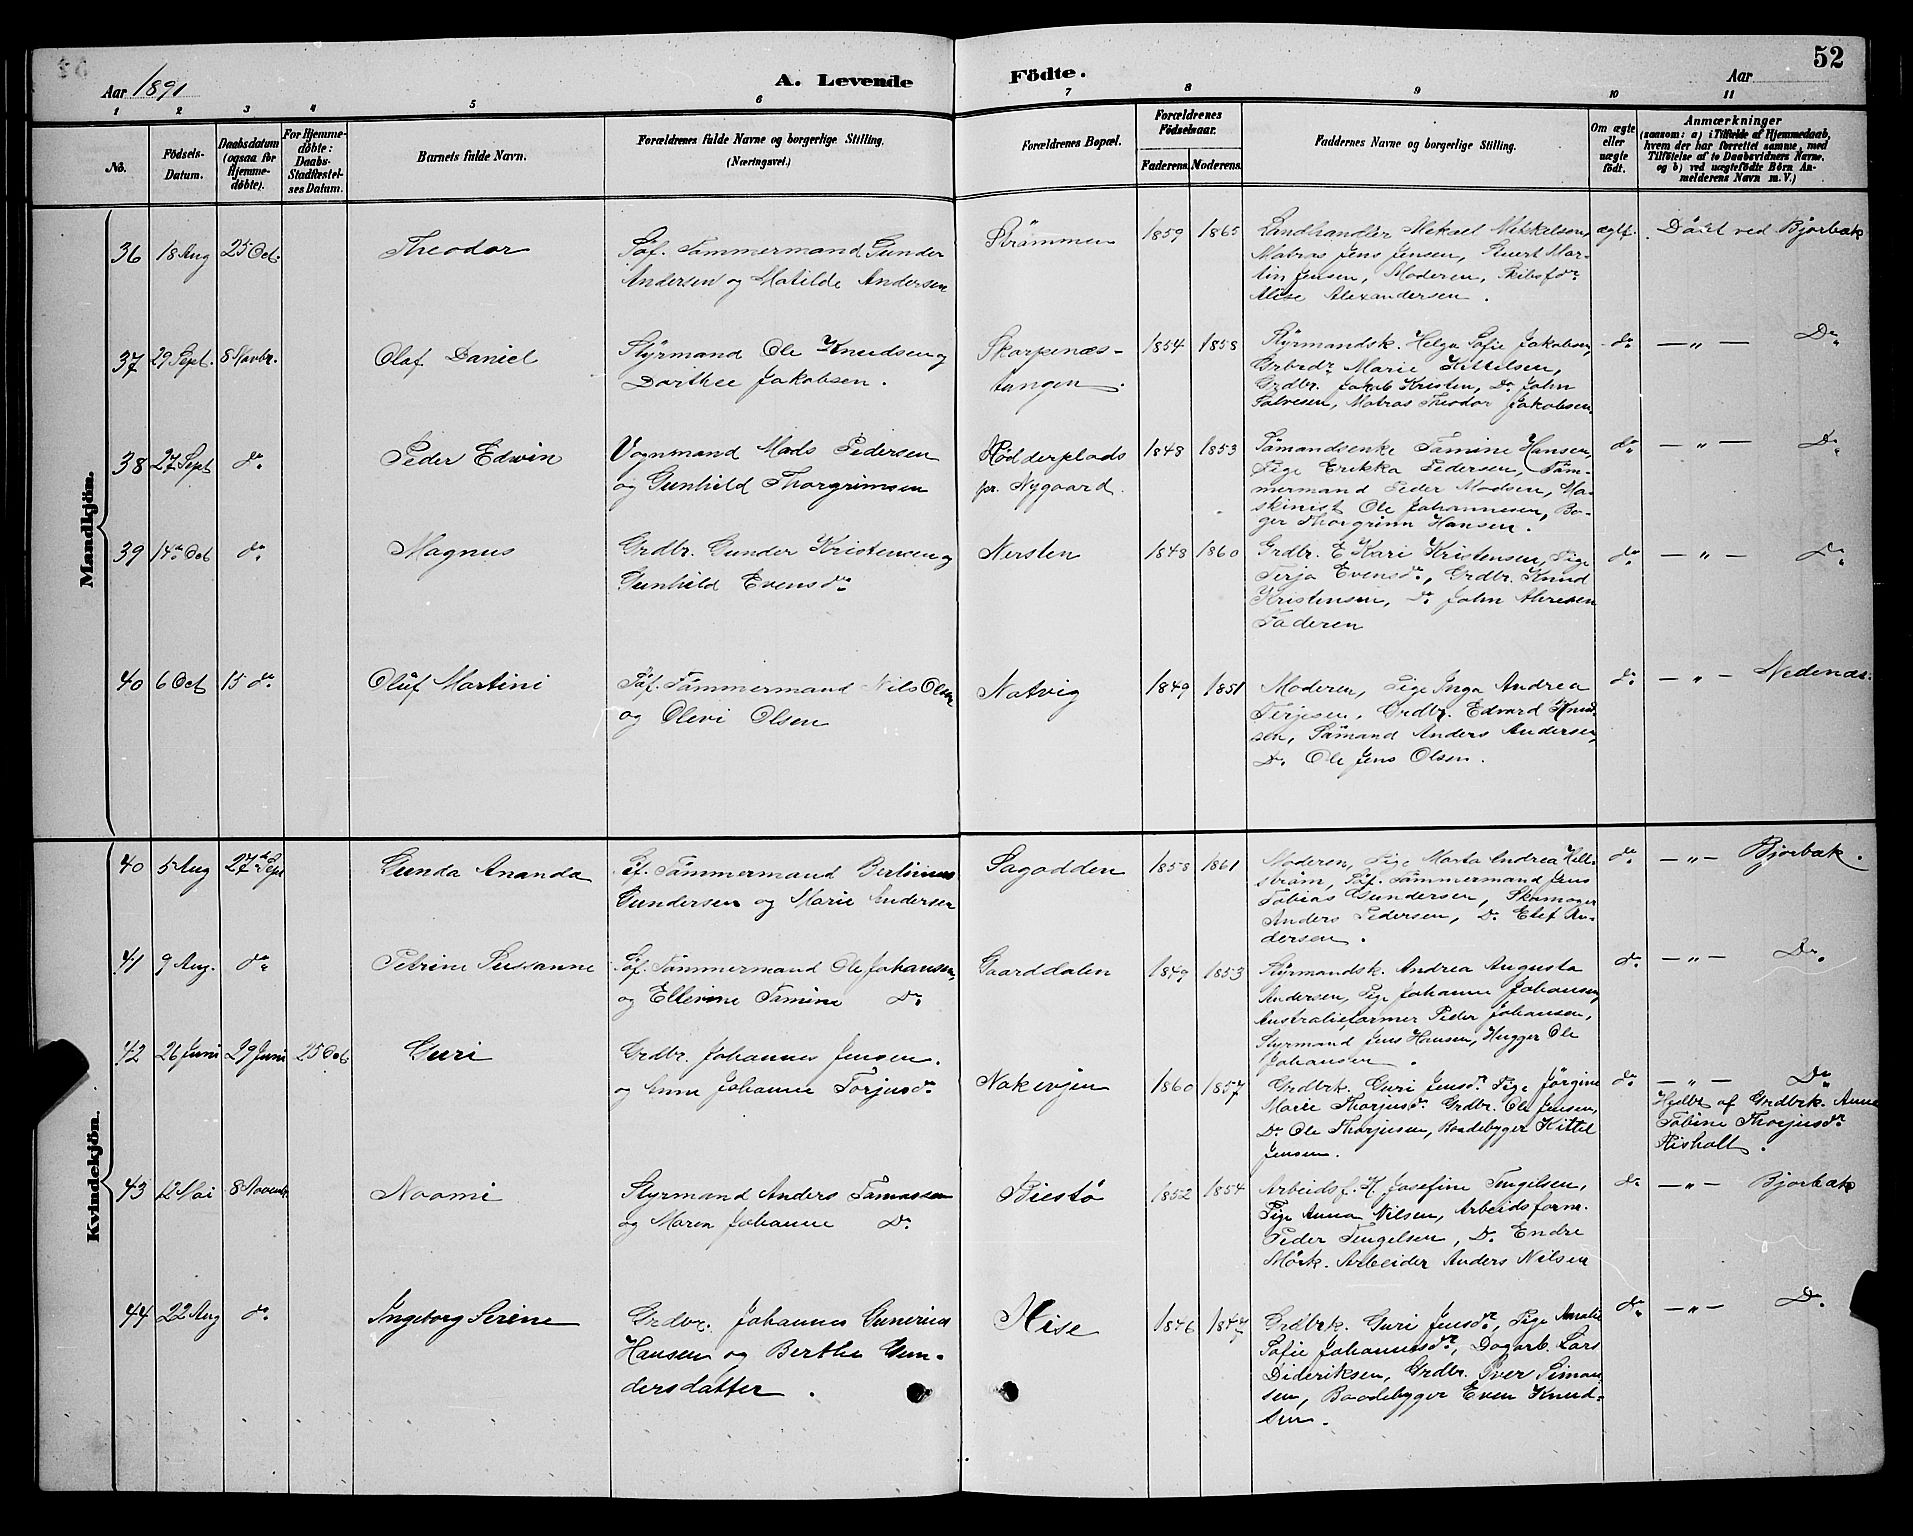 52
Aar 1891
A. Levende
Födte.
Aar
1 2 3 4 5 6 7 8 9 10 11
No.
Födsels-
Datum.
Daabsdatum
(ogsaa for
Hjemme-
döbte).
For Hjemme-
döbte:
Daabs-
Stadfæstel-
ses Datum.
Barnets fulde Navn.
Forældrenes fulde Navne og borgerlige Stilling.
(Næringsvei.)
Forældrenes Bopæl.
Forældrenes
Födselsaar.
Faderens. Moderens.
Faddernes Navne og borgerlige Stilling.
Om ægte
eller
uægte
födt.
Anmærkninger
(saasom: a) i Tilfælde af Hjemmedaab,
hvem der har forrettet samme, med
Tilföielse af to Daabsvidners Navne,
og b) ved uægtefödte Börn An-
melderens Navn m. V.)
Mandkjön.
36 18 Aug 25 Oct. Theodor
Söf. Tømmermand Gunder
Andersen og Matilde Andersen
Strömmen 1859 1865
Landhandler Mekael Mikkelsen,
Matros Jens Jensen, Stuert Mar-
tin Jensen, Moderen, Skibsfdr
Alise Alexandersen.
ægte. Döbt ved Bjorbæk
37 29 Sept. 8 Novbr. Olaf Daniel
Styrmand Ole Knudsen og
Dorthee Jakobsen.
Skarpenæs-
tangen. 1854 1858
Styrmandsk. Helga Sofie Jakobsen,
Grbrdr Marie Kittelsen,
Grdbr. Jakob Kristen, Do John
Salvesen, Matros Theodor Jakobsen
do — " — Do
38 27 Sept do Peder Edvin
Vognmand Mads Pedersen
og Gunhild Thorgrimsen
Rödderplads
pr. Nygaard. 1848 1853
Sömandsenke Tamine Hansen,
Pige Erikka Pedersen, Töm-
mermand Peder Madsen, Ma-
skinist Ole Johannesen, Ba-
ger Thorgrim Hansen.
do — " — Do
39 14de Oct do Magnus
Grdbr. Gunder Kristensen og
Gunhild Evensdr
Nersten 1848 1860
Grdbr. E Kari Kristensen, Pige
Terja Evensdr, Grdbr. Knud
Kristensen, Do John Ahresen
Faderen
do — " — Do
40 6 Oct 15 do Oluf Martini
Söf. Tömmermand Nils Olsen
og Olevi Olsen
Natvig 1849 1851
Moderen, Pige Inga Andrea
Terjesen, Grdbr. Edvard Knud-
sen, Sömand Anders Andersen,
Do Ole Jens Olsen.
do — " — Nedenæs.
Kvindekjön.
40 5 Aug 27de Sept Gunda Ananda
Söf. Tömmermand Bertinius
Gundersen og Marie Andersen
Sagodden 1858 1861
Moderen, Pige Marta Andrea Hell-
ström, Söf. Tömmermand Jens
Tobias Gundersen, Skomager
Anders Pedersen, Do Elef An-
dersen.
do — " — Bjorbæk.
41 9 Aug. do Petrine Susanne
Söf. Tömmermand Ole Johansen,
og Ellevine Tamine Do
Gaarddalen 1849 1853
Styrmandsk. Andrea Augusta
Andersen, Pige Johanne Johansen,
Australiefarmer Peder Johansen,
Styrmand Jens Hansen, Hugger Ole
Johansen.
do — " — Do
42 26 Juni 29 Juni 25 Oct Guri
Grdbr. Johannes Jensen.
og Anne Johanne Torjusdr
Nakevjen 1860 1857
Grdbrk. Guri Jensdr Pige Jörgine
Marie Thorjusdr Grdbr. Ole Jensen,
Do Ole Thorjusen, Baadebygger Kittel
Jensen.
do — " — Do
Hjdbt af Grdbrk. Anne
Tobine Thorjusdr
Risholt.
43 12 Mai 8 Novembr Noomi
Styrmand Anders Tamassen
og Maren Johanne Do
Biestö 1852 1854
Arbeidsf. H. Josefine Tengelsen,
Pige Anna Nilsen, Arbeidsform.
Peder Tengelsen, Do Endre
Mörk. Arbeider Anders Nilsen
do — " — Bjorbæk
44 22 Aug do Ingeborg Serine
Grdbr. Johannes Gunerius
Hansen og Berthe Gun-
dersdatter.
Hise 1846 1847
Grdbrk. Guri Jensdr, Pige Amalie
Sofie Johannesdr, Dagarb. Lars
Dideriksen, Grdbr. Iver Simon-
sen, Baadebygger Even Knud-
sen.
do — " — Do